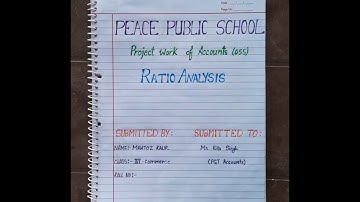 PEACE PUBLIC SCHOOL
Project Work of Accounts (055)
RATIO ANALYSIS
SUBMITTED BY: SUBMITTED TO:
NAME:- KAUR Mr. Singh
CLASS:- Commerce (PGT Accounts)
ROLL NO:-